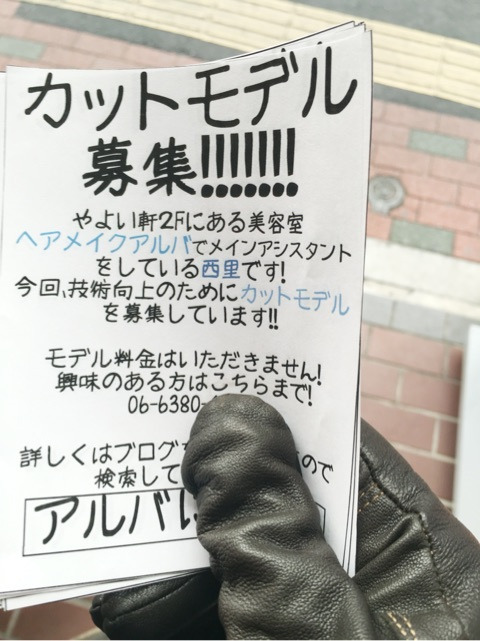 カットモデル
募集!!!!!!!
やよい軒2Fにある美容室
ヘアメイクアルバでメインアシスタント
をしている西里です!
今回、技術向上のためにカットモデル
を募集しています!!
モデル料金はいただきません!
興味のある方はこちらまで!
06-6380-
詳しくはブログ ので
検索して
アルバ